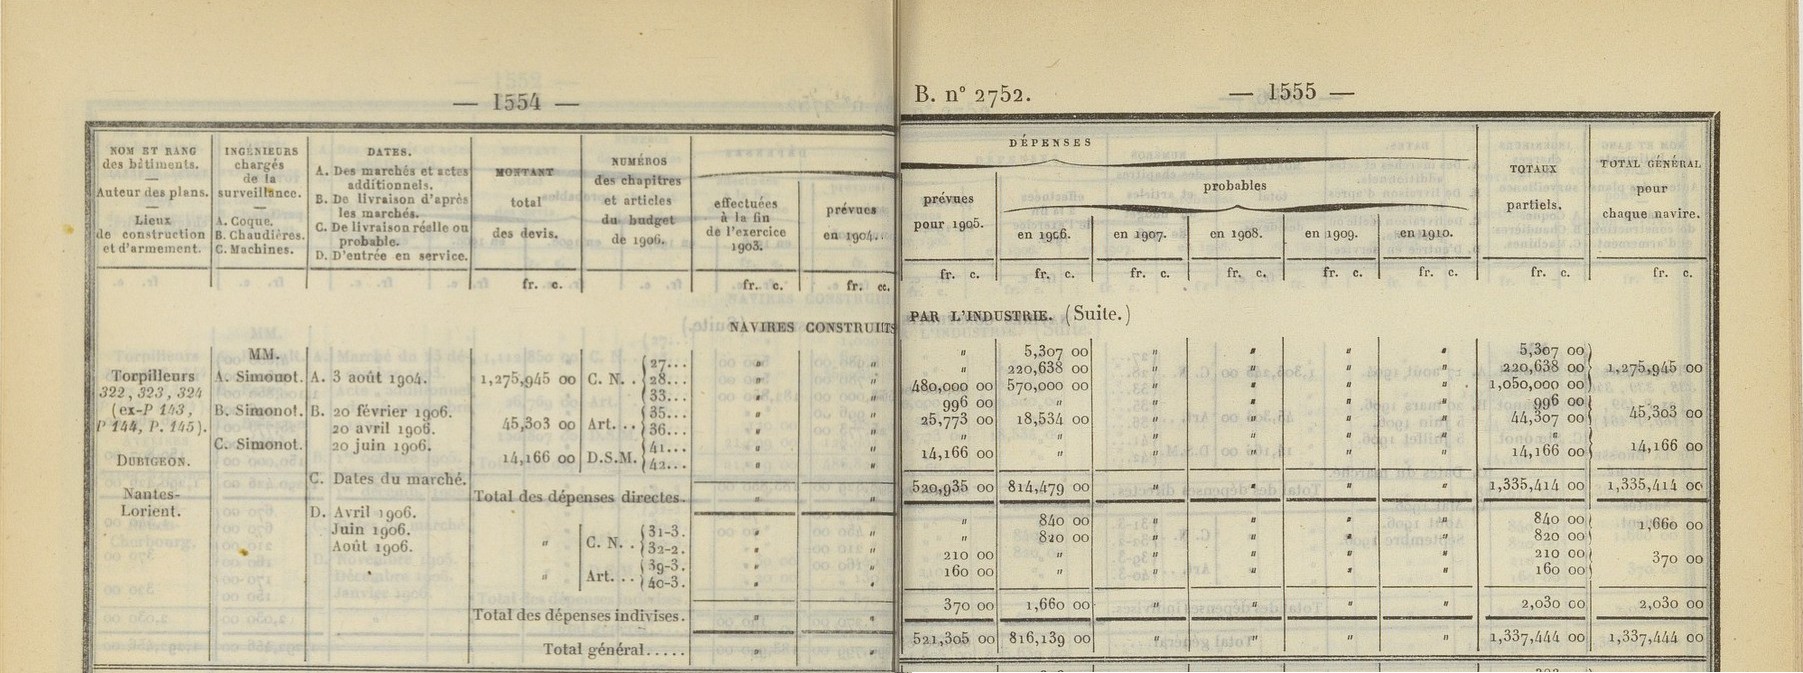 — 1554 —
NOM ET RANG
des bâtiments.
—
Auteur des plans.
—
Lieux
de construction
et d'armement.
INGÉNIEURS
chargés
de la
surveillance.
—
A. Coque.
B. Chaudières.
C. Machines.
DATES.
—
A. Des marchés et actes
additionnels.
B. De livraison d'après
les marchés.
C. De livraison réelle ou
probable.
D. D'entrée en service.
MONTANT
total
des devis.
NUMÉROS
des chapitres
et articles
du budget
de 1906.
effectuées
à la fin
de l'exercice
1903.
prévues
en 1904.
fr. c.
fr. c.
fr. c.
NAVIRES CONSTRUITS
Torpilleurs
322, 323, 324
(ex-P 143,
P 144, P. 145).
DUBIGEON.
Nantes-
Lorient.
MM.
A. Simonot.
B. Simonot.
C. Simonot.
A. 3 août 1904.
B. 20 février 1906.
20 avril 1906.
20 juin 1906.
C. Dates du marché.
D. Avril 1906.
Juin 1906.
Août 1906.
1,275,945 00 C. N. . { 27... " "
28... " "
33... " "
45,303 00 Art. . . { 35... " "
36... " "
14,166 00 D.S.M. { 41... " "
42... " "
Total des dépenses directes. " "
" C. N. . { 31-3. " "
32-2. " "
" Art. . . { 39-3. " "
40-3. " "
Total des dépenses indivises. " "
Total général..... " "
B. n° 2752. — 1555 —
DÉPENSES
prévues
pour 1905.
probables
en 1906. en 1907. en 1908. en 1909. en 1910.
TOTAUX
partiels.
TOTAL GÉNÉRAL
pour
chaque navire.
fr. c. fr. c. fr. c. fr. c. fr. c. fr. c. fr. c. fr. c.
PAR L'INDUSTRIE. (Suite.)
" 5,307 00 " " " " 5,307 00
" 220,638 00 " " " " 220,638 00 } 1,275,945 00
480,000 00 570,000 00 " " " " 1,050,000 00
996 00 " " " " " 996 00 } 45,303 00
25,773 00 18,534 00 " " " " 44,307 00
" " " " " " "
14,166 00 " " " " " 14,166 00 } 14,166 00
520,935 00 814,479 00 " " " " 1,335,414 00 1,335,414 00
" 840 00 " " " " 840 00 } 1,660 00
" 820 00 " " " " 820 00
210 00 " " " " " 210 00 } 370 00
160 00 " " " " " 160 00
370 00 1,660 00 " " " " 2,030 00 2,030 00
521,305 00 816,139 00 " " " " 1,337,444 00 1,337,444 00